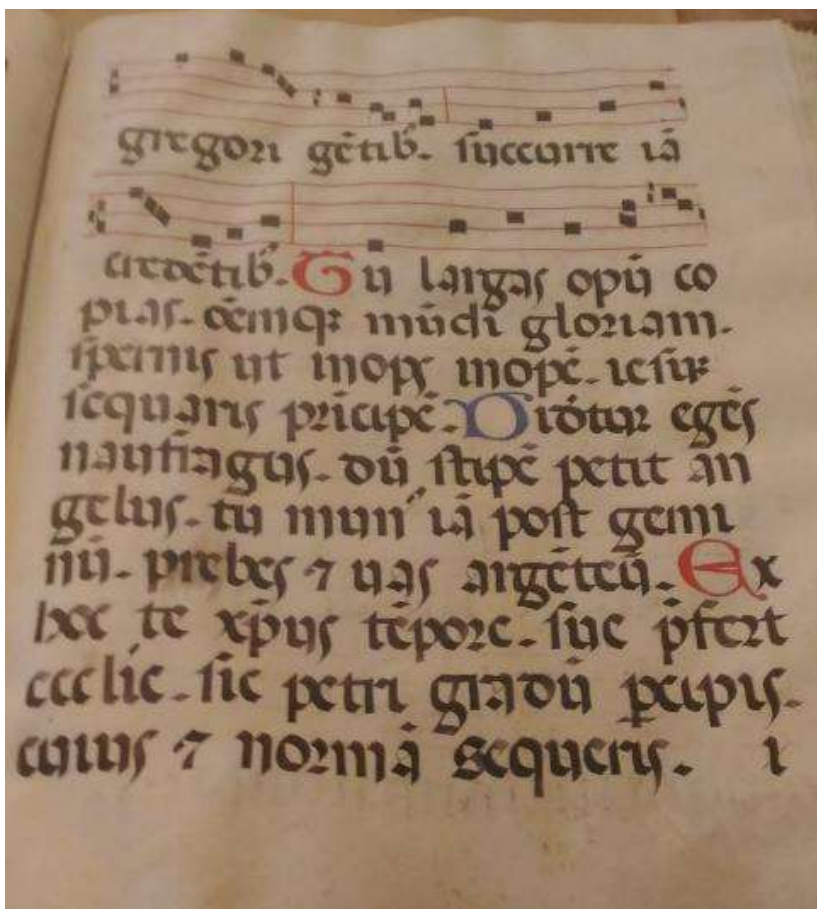 gregori gētib᷒. succurre iā
credētib᷒. Tu largas opū co
pias. oēmqꝫ mūdi gloriam.
sp̄ernis ut inops inopē. iesūꝫ
sequaris prīcipē. Vidētur egēs
naufragus. dū stipē petit an
gelus. tu mun' iā post gemi
nū. prebes ⁊ uas argēteū. Ex
hec te xp̄us tēpore. sue p̄fert
ecclīe. sic petri gradū ꝑcipis.
cuius ⁊ normā sequeris. i